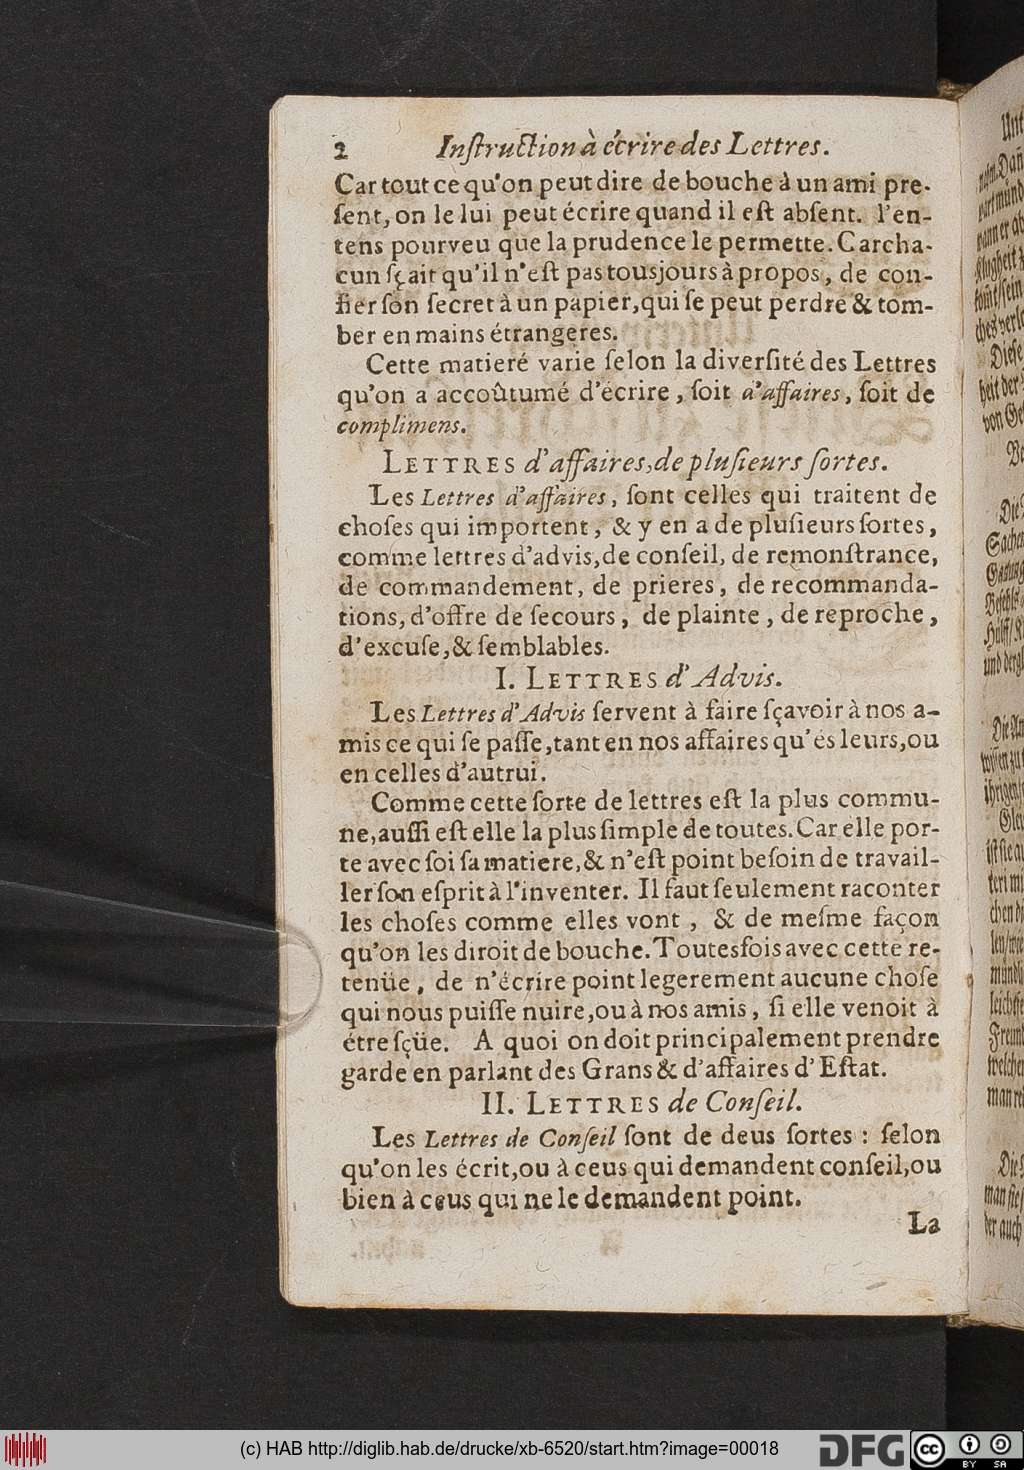 2 Inſtruction à écrire des Lettres.
Car tout ce qu'on peut dire de bouche à un ami pre-
ſent, on le lui peut écrire quand il eſt abſent. l'en-
tens pourveu que la prudence le permette. Car cha-
cun ſçait qu'il n'eſt pas tousjours à propos, de con-
fier ſon ſecret à un papier, qui ſe peut perdre & tom-
ber en mains étrangeres.
Cette matieré varie ſelon la diverſité des Lettres
qu'on a accoûtumé d'écrire, ſoit d'affaires, ſoit de
complimens.
LETTRES d'affaires, de pluſieurs ſortes.
Les Lettres d'affaires, ſont celles qui traitent de
choſes qui importent, & y en a de pluſieurs ſortes,
comme lettres d'advis, de conſeil, de remonſtrance,
de commandement, de prieres, de recommanda-
tions, d'offre de ſecours, de plainte, de reproche,
d'excuſe, & ſemblables.
I. LETTRES d'Advis.
Les Lettres d'Advis ſervent à faire ſçavoir à nos a-
mis ce qui ſe paſſe, tant en nos affaires qu'és leurs, ou
en celles d'autrui.
Comme cette ſorte de lettres eſt la plus commu-
ne, auſſi eſt elle la plus ſimple de toutes. Car elle por-
te avec ſoi ſa matiere, & n'eſt point beſoin de travail-
ler ſon eſprit à l'inventer. Il faut ſeulement raconter
les choſes comme elles vont, & de meſme façon
qu'on les diroit de bouche. Toutesfois avec cette re-
tenüe, de n'écrire point legerement aucune choſe
qui nous puiſſe nuire, ou à nos amis, ſi elle venoit à
étre ſçüe. A quoi on doit principalement prendre
garde en parlant des Grans & d'affaires d'Eſtat.
II. LETTRES de Conſeil.
Les Lettres de Conſeil ſont de deus ſortes : ſelon
qu'on les écrit, ou à ceus qui demandent conſeil, ou
bien à ceus qui ne le demandent point.
La
(c) HAB http://diglib.hab.de/drucke/xb-6520/start.htm?image=00018
DFG
cc BY SA